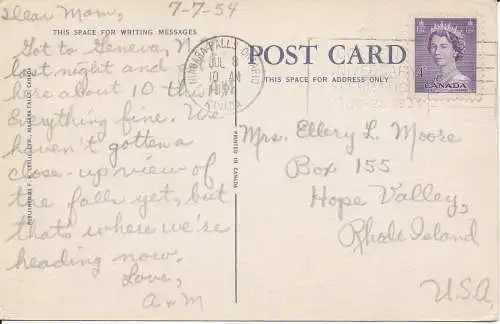 Dear Mom, 7-7-54
THIS SPACE FOR WRITING MESSAGES
Got to Geneva, N
last night and
here about 10 this
Everything fine. We
haven't gotten a
close-up view of
the falls yet, but
that's where we're
heading now.
Love,
A & M
NIAGARA-FALLS ONTARIO
JUL 8
10 AM
CANADA
POST CARD
THIS SPACE FOR ADDRESS ONLY
CANADA
PRINTED IN CANADA
Mrs. Ellery L. Moore
Box 155
Hope Valley,
Rhode Island
U.S.A.